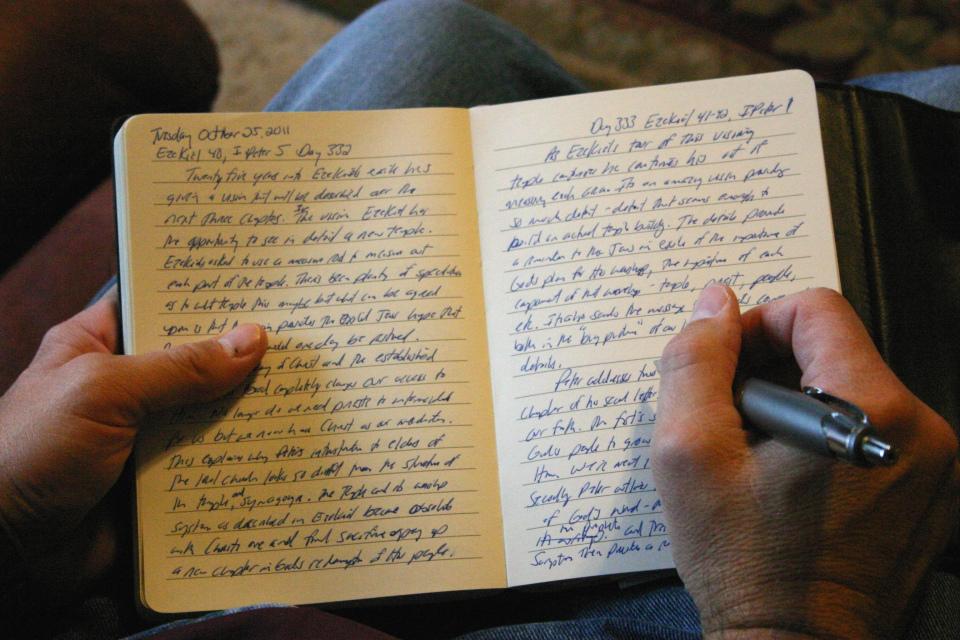 Tuesday October 25, 2011
Ezekiel 40, I Peter 5 Day 332
Twenty five years into Ezekiel's exile he's
given a vision that will be described over the
next three chapters. In the vision Ezekiel has
the opportunity to see in detail a new temple.
Ezekiel is asked to use a measuring rod to measure out
each part of the temple. There's been plenty of speculation
as to what temple this maybe but what can be agreed
upon is that provides the exiled Jews hope that
would one day be restored.
of Christ and the established
completely changes our access to
no longer do we need priests to intercede
for us but we now have Christ as our mediator.
This explains why Peter's instruction to elders of
the local church looks so different from the structure of
the temple and synagogue. The temple and its worship
system as described in Ezekiel became obsolete
with Christ's one and final sacrifice opening up
a new chapter in God's redemption of His people.
Day 333 Ezekiel 41-42, II Peter 1
As Ezekiel's tour of this visionary
temple continues he continues his out of
measuring each area. It's an amazing vision providing
so much detail - detail that seems enough to
build an actual temple building. The details provide
a reminder to the Jews in exile of the importance of
God's plan for His worship, the picture of each
component of that worship - temple, priest, people,
etc. It also sends the message
both in the "big picture" of our
details.
Peter addresses two
chapter of his second letter
our faith. The first is
God's people to grow
Him were meant
Secondly Peter outlines
of God's word
in prophets. and
Scripture then provides a